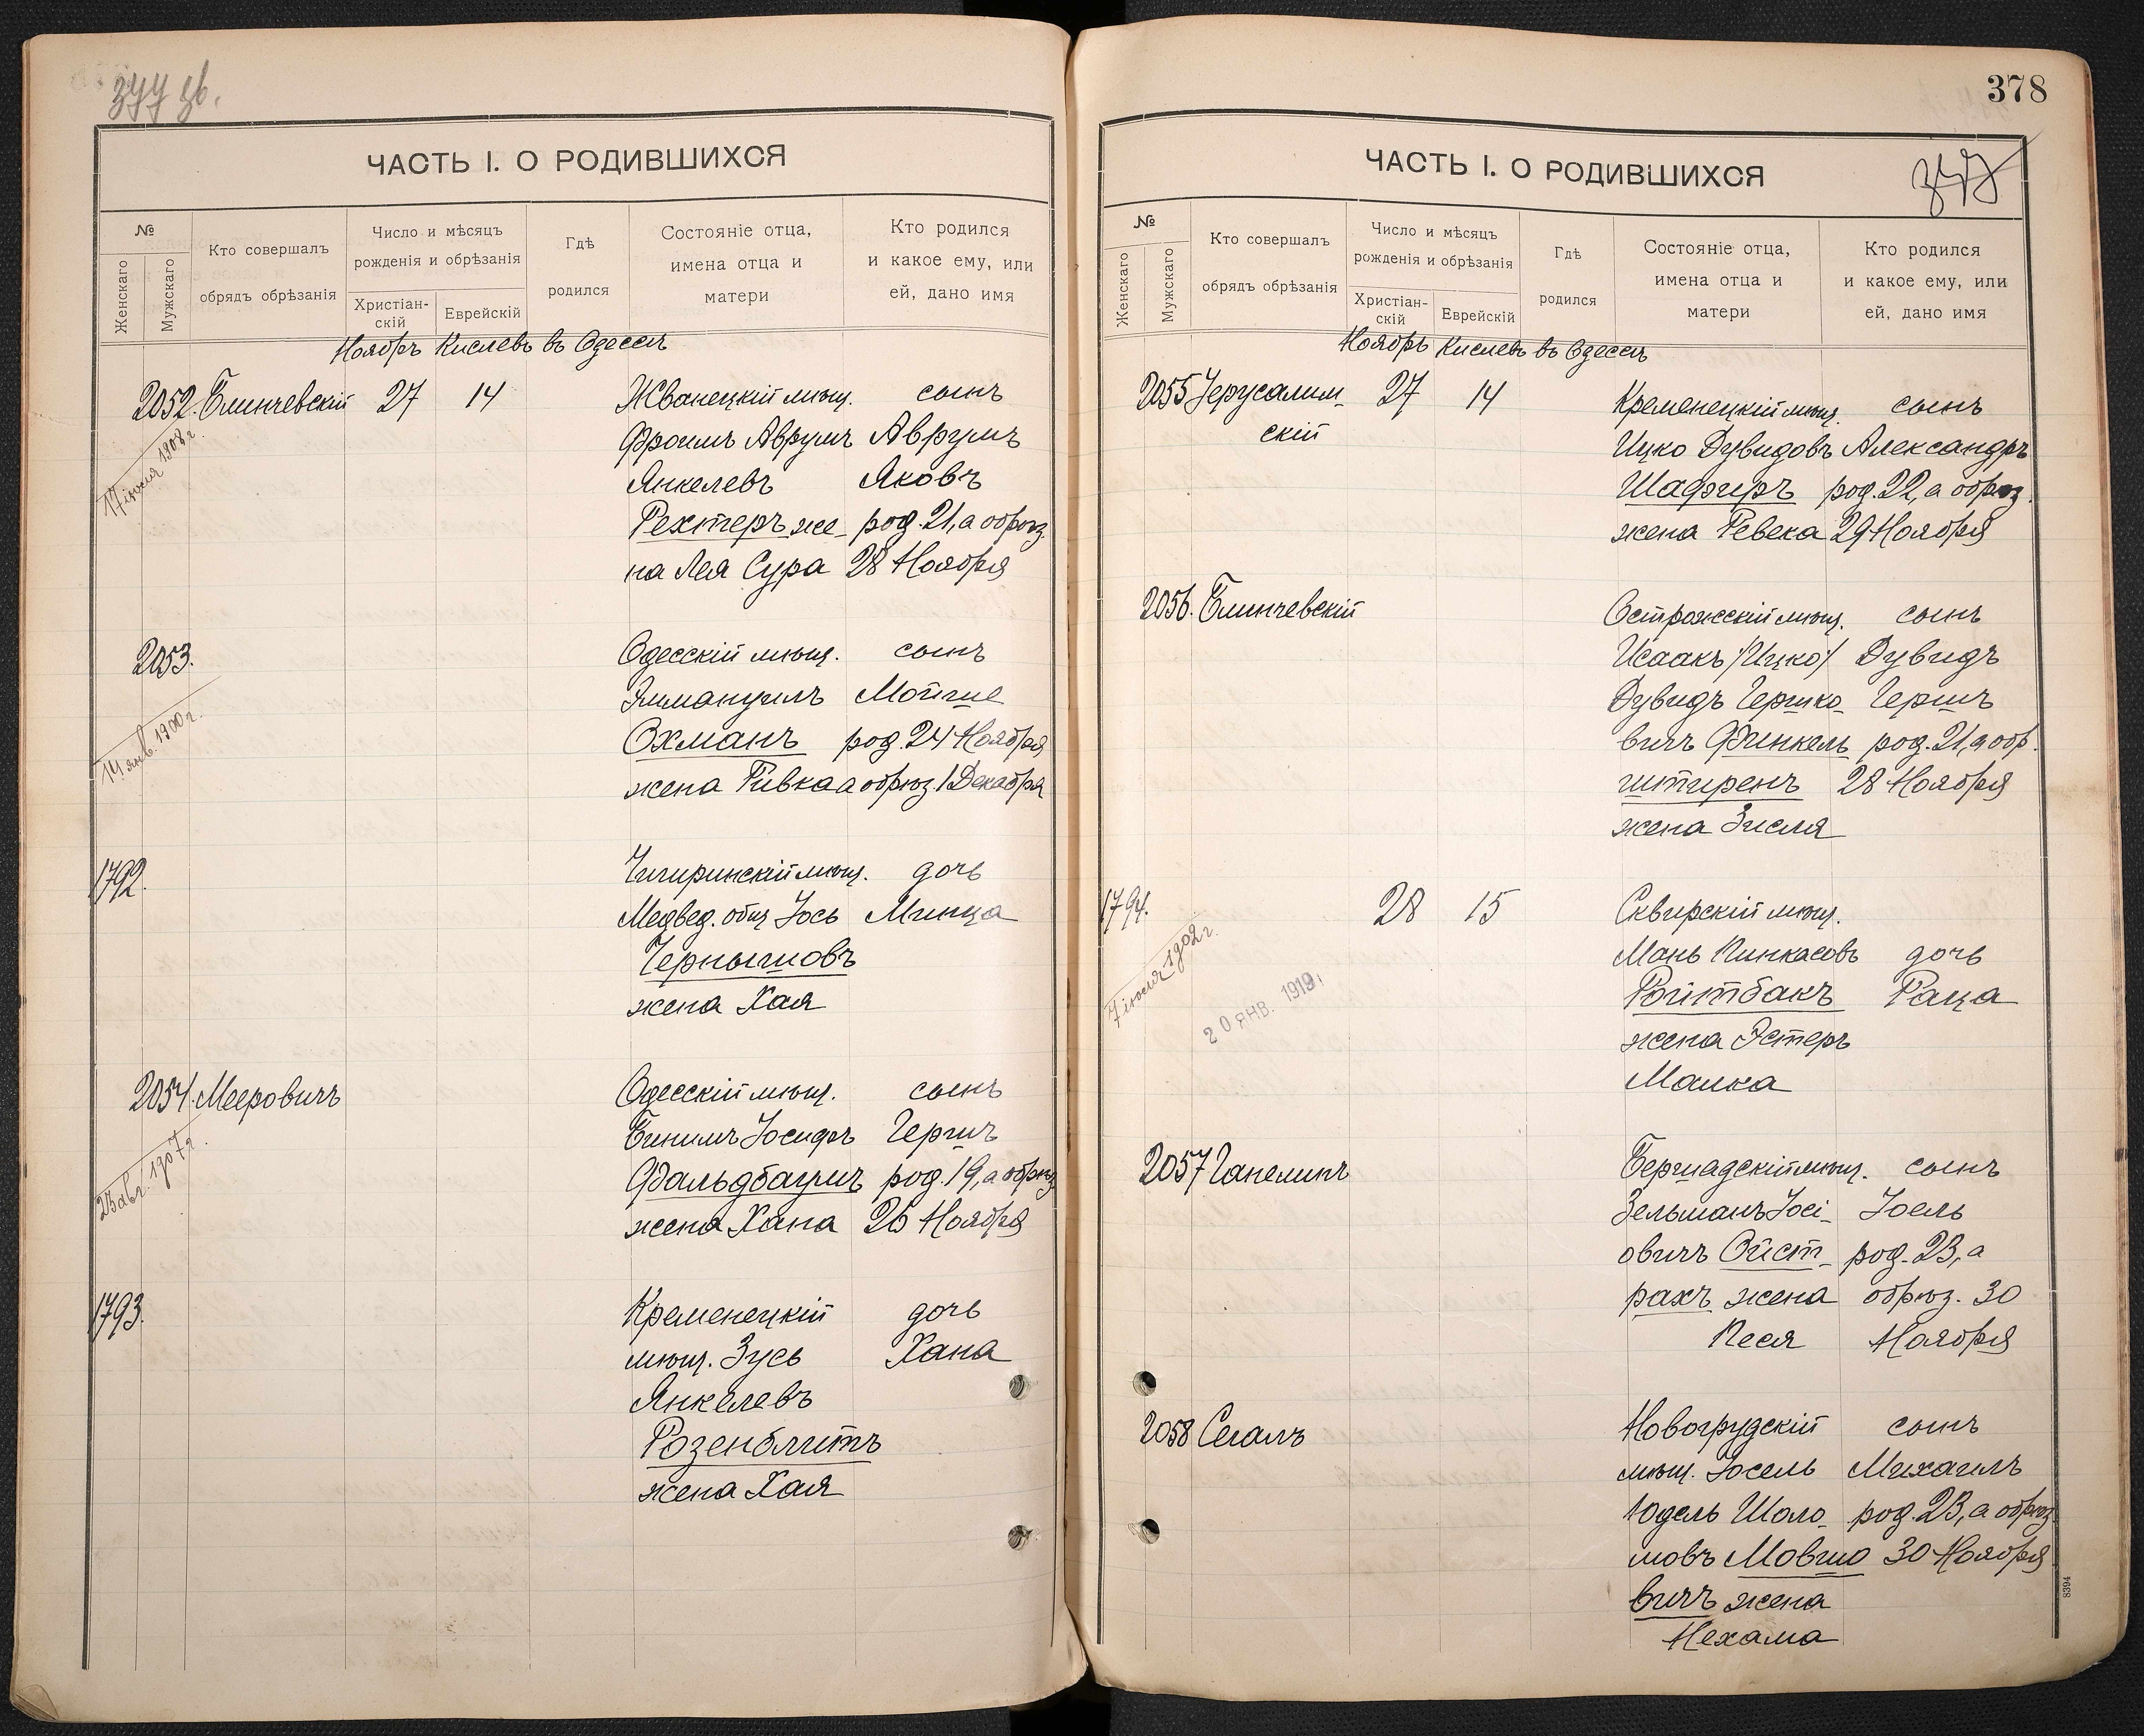 ЧАСТЬ I. О РОДИВШИХСЯ
№
Женскаго
Мужскаго
Кто совершалъ
обрядъ обрѣзанія
Число и мѣсяцъ
рожденія и обрѣзанія
Христіан-
скій
Еврейскій
Гдѣ
родился
Состояніе отца,
имена отца и
матери
Кто родился
и какое ему, или
ей, дано имя
Ноябрь Кислевъ въ Одессѣ
2052. Блинчевскій 27 14 Жванецкій мѣщ. сынъ
17 іюля 1908 г.
Фроимъ Аврумъ Аврумъ
Янкелевъ Яковъ
Рехтеръ же- род. 21, а обрѣз.
на Лея Сура 28 Ноября
2053. Одесскій мѣщ. сынъ
14 янв. 1900 г.
Эммануилъ Мойше
Охманъ род. 24 Ноября
жена Ривка а обрѣз. 1 Декабря
1792. Чигиринскій мѣщ. дочь
Медвед. общ Іось Минца
Чернышовъ
жена Хая
2054. Мееровичъ Одесскій мѣщ. сынъ
23 авг. 1907 г.
Бинимъ Іосифъ Гершъ
Фальдбаумъ род. 19, а обрѣз
жена Хана 26 Ноября
1793. Кременецкій дочь
мѣщ. Зусь Хана
Янкелевъ
Розенблитъ
жена Хая
378
ЧАСТЬ I. О РОДИВШИХСЯ
№
Женскаго
Мужскаго
Кто совершалъ
обрядъ обрѣзанія
Число и мѣсяцъ
рожденія и обрѣзанія
Христіан-
скій
Еврейскій
Гдѣ
родился
Состояніе отца,
имена отца и
матери
Кто родился
и какое ему, или
ей, дано имя
Ноябрь Кислевъ въ Одессѣ
2055 Іерусалим- 27 14 Кременецкій мѣщ. сынъ
скій Ицко Дувидовъ Александръ
Шафиръ род. 22, а обрѣз.
жена Ревека 29 Ноября
2056. Блинчевскій Острожскій мѣщ. сынъ
Исаакъ /Ицко/ Дувидъ
Дувидъ Гершко- Гершъ
вичъ Финкель род. 21, а обр.
штиренъ 28 Ноября
жена Зисля
1794. 28 15 Сквирскій мѣщ.
7 іюля 1902 г.
20 ЯНВ. 1919
Мань Пинкасовъ дочь
Ройтбакъ Раца
жена Эстеръ
Малка
2057 Ганелинъ Бершадскій мѣщ. сынъ
Зельманъ Іосі- Іоель
овичъ Ойст- род. 23, а
рахъ жена обрѣз. 30
Песя Ноября
2058 Сегалъ Новогрудскій сынъ
мѣщ. Іосель Михаилъ
Юдель Шоло- род. 23, а обрѣз
мовъ Мовшо 30 Ноября
вичъ жена
Нехама
8394